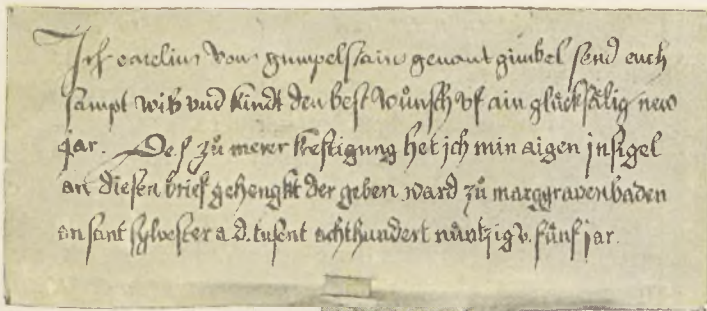 Ich carelius von gumpelstain genant gimbel send euch
sampt wib vnd kindt den best wůnsch vf ain glůcksålig new
jar. Des zů merer kreftigung het ich min aigen insigel
an diesen brief gehengkt der geben ward zů marggravenbaden
an sant sylvester a.d. tusent achthundert nůntzig v. fůnf jar.